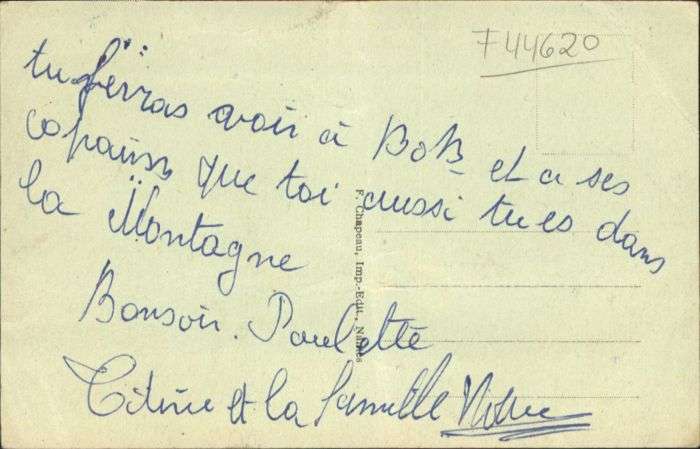 F44620
tu ferras voir à BoB et a ses
copains que toi aussi tu es dans
la Montagne
Bonsoir. Paulette
Titine et la famille
F. Chapeau, Imp.-Edit., Nantes